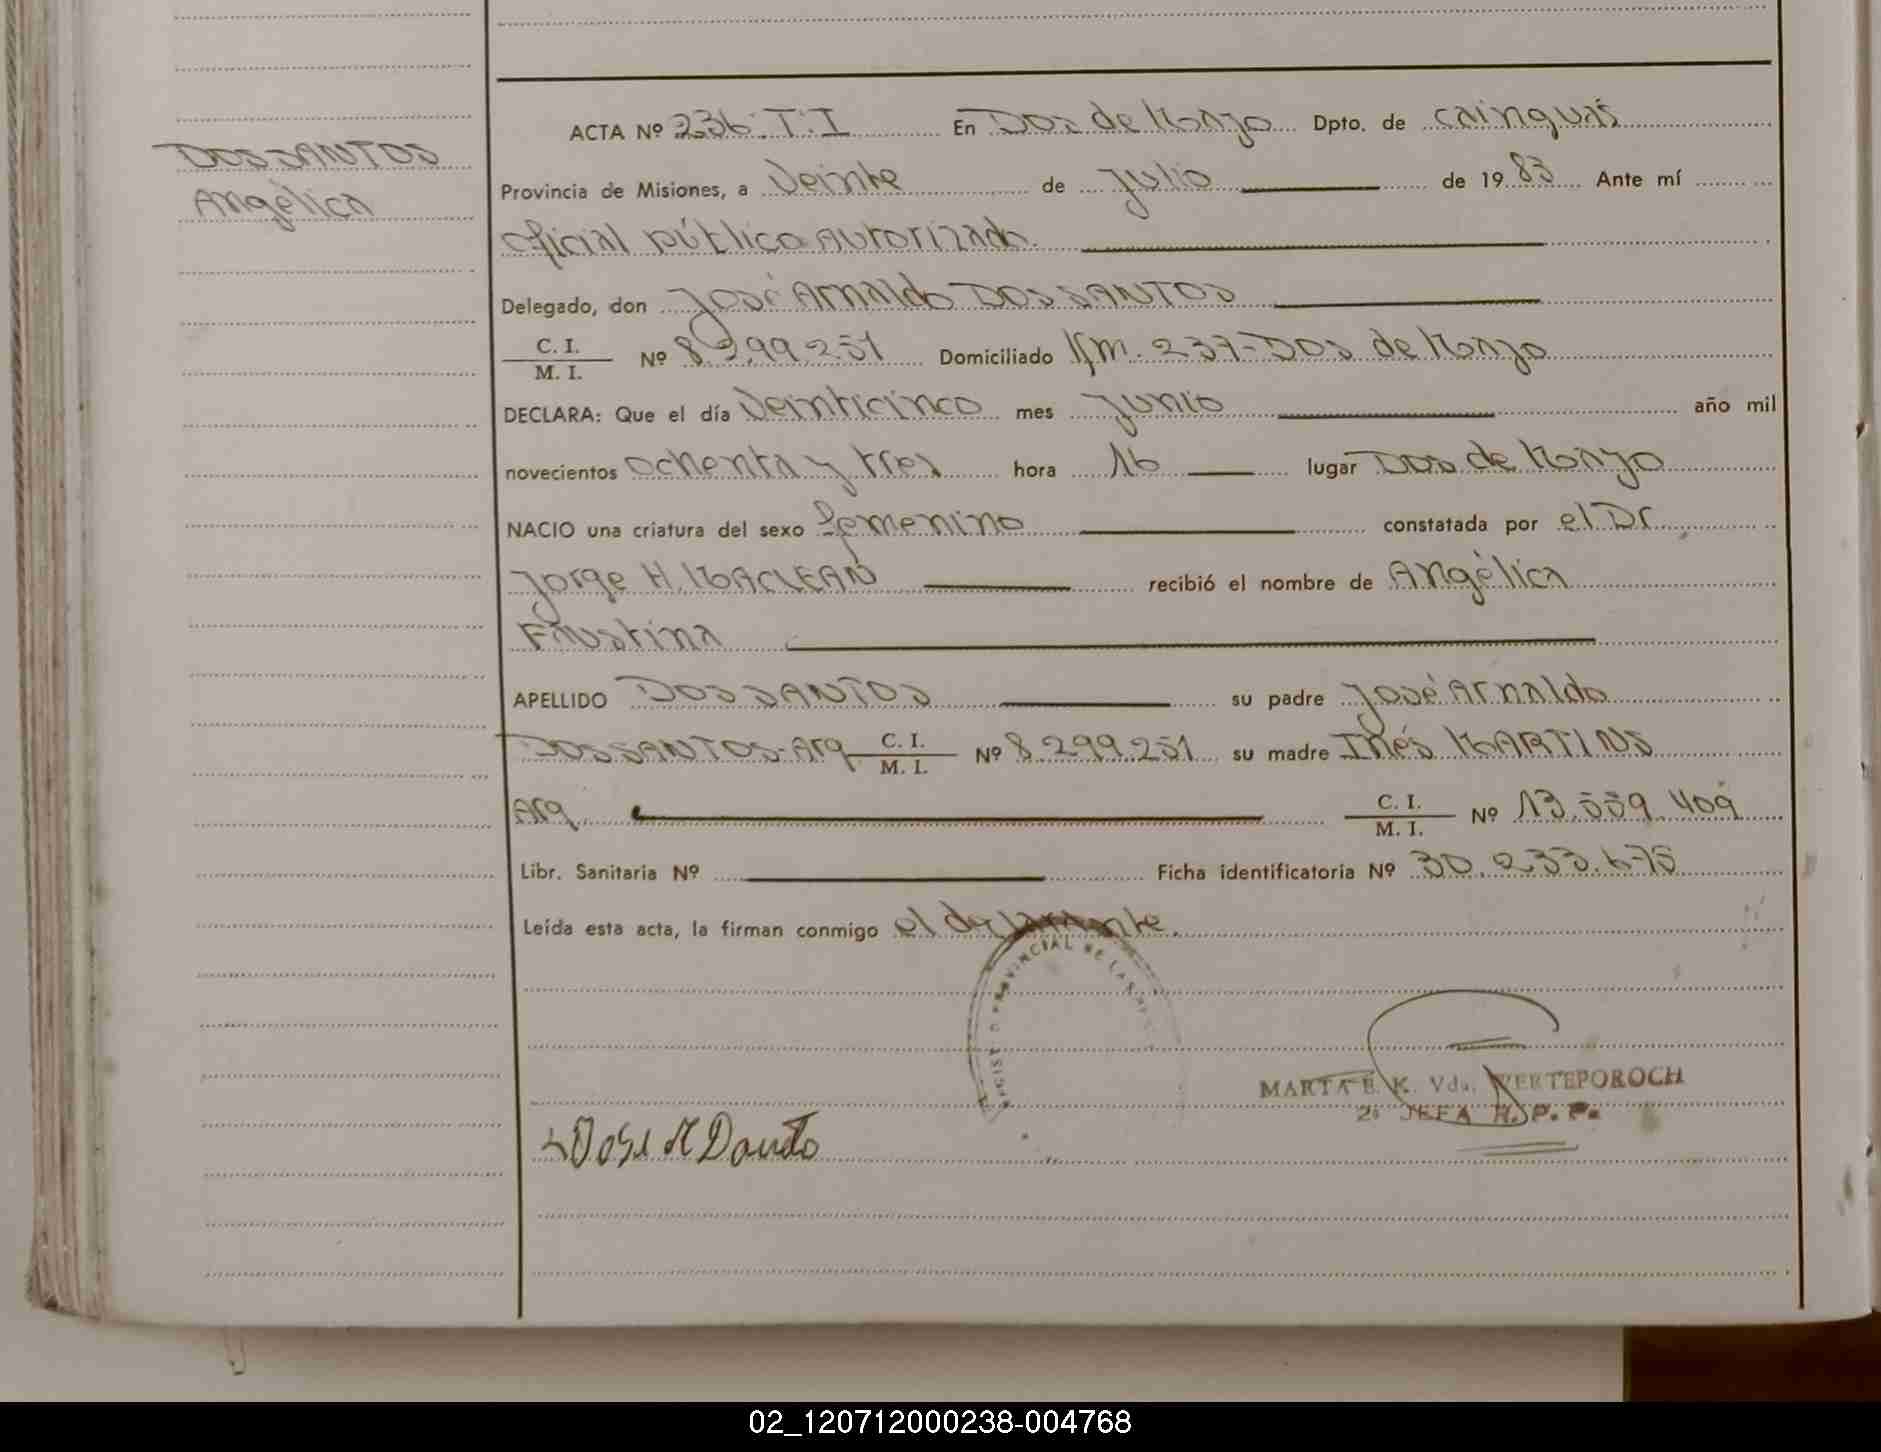 DOS SANTOS
Angélica
ACTA Nº 236.T.I En Dos de Mayo Dpto. de Cainguás
Provincia de Misiones, a Veinte de Julio de 19 83 Ante mí
Oficial público Autorizado.
Delegado, don José Arnaldo DOS SANTOS
C. I.
M. I. Nº 8.299.251 Domiciliado Km. 237-Dos de Mayo
DECLARA: Que el día Veinticinco mes Junio año mil
novecientos ochenta y tres hora 16 lugar Dos de Mayo
NACIO una criatura del sexo femenino constatada por el Dr
Jorge H. MACLEAN recibió el nombre de Angélica
Faustina
APELLIDO DOS SANTOS su padre José Arnaldo
DOS SANTOS-Arg C. I. M. I. Nº 8.299.251 su madre Inés MARTINS
Arg C. I. M. I. Nº 13.559.409
Libr. Sanitaria Nº Ficha identificatoria Nº 30.233.675
Leída esta acta, la firman conmigo el declarante.
PROVINCIAL DE LAS
MARTA E. K. Vda. WERTEPOROCH
2ª JEFA R. P. P.
02_120712000238-004768